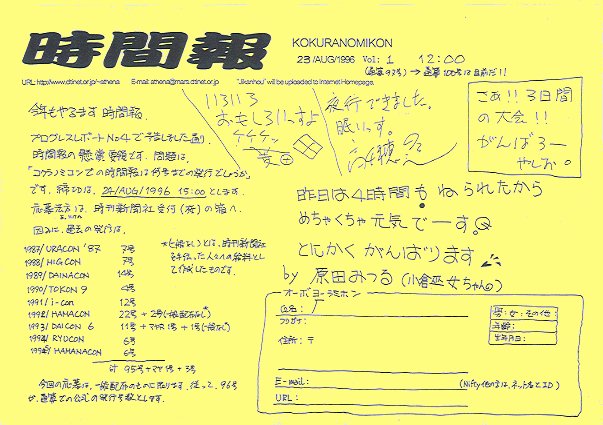 時間報
KOKURANOMIKON
23/AUG/1996 Vol: 1 12:00
URL: http://www.dtinet.or.jp/~athena E-mail: athena@mars.dtinet.or.jp "Jikanhou" will be uploaded to Internet Homepage.
今年もやります 時間報.
プログレスレポートNo4で予告しました通り
時間報の懸賞要項です. 問題は,
「コクラノミコンでの時間報は何号までの発行でしょうか」
です. 締切は, 24/AUG/1996 15:00とします.
応募方法は, 時刊新聞社受付(仮)の箱へ.
因みに, 過去の発行は,
1987/URACON '87 7号
1988/HIGCON 7号
1989/DAINACON 14号
1990/TOKON 9 4号
1991/i-con 12号
1992/HAMACON 22号+2号(一般配布なし)
1993/DAICON 6 11号+マヤR 1号+1号(一般なし)
1994/RYUCON 6号
1995/HAMANACON 6号
計 95号+マヤR 1号+3号
今回の応募は, 一般配布のものに限ります. 従って, 96号
が, 通算での公式の発行号数とします.
いろいろ
おもしろいっすよ
ケケケッ
夜行できました。
眠いっす。
さあ!!3日間
の大会!!
がんばろー
やしお。
昨日は4時間もねられたから
めちゃくちゃ元気でーす。
とにかくがんばります
by 原田みつる(小倉巫女ちゃんの)
オーボヨーシ
氏名:
フリガナ:
住所:〒
E-mail:
URL:
男:女:その他:
年齢:
生年月日:
(Nifty他の方は, ネット名とID)